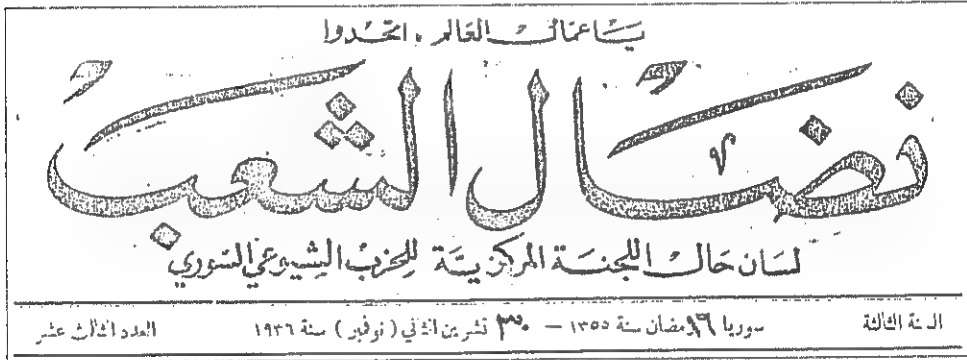 يا عمال العالم، اتحدوا
نضال الشعب
لسان حال اللجنة المركزية للحزب الشيوعي السوري
السنة الثالثة سوريا ١٦ رمضان سنة ١٣٥٥ — ٣٠ تشرين الثاني (نوفمبر) سنة ١٩٣٦ العدد الثالث عشر